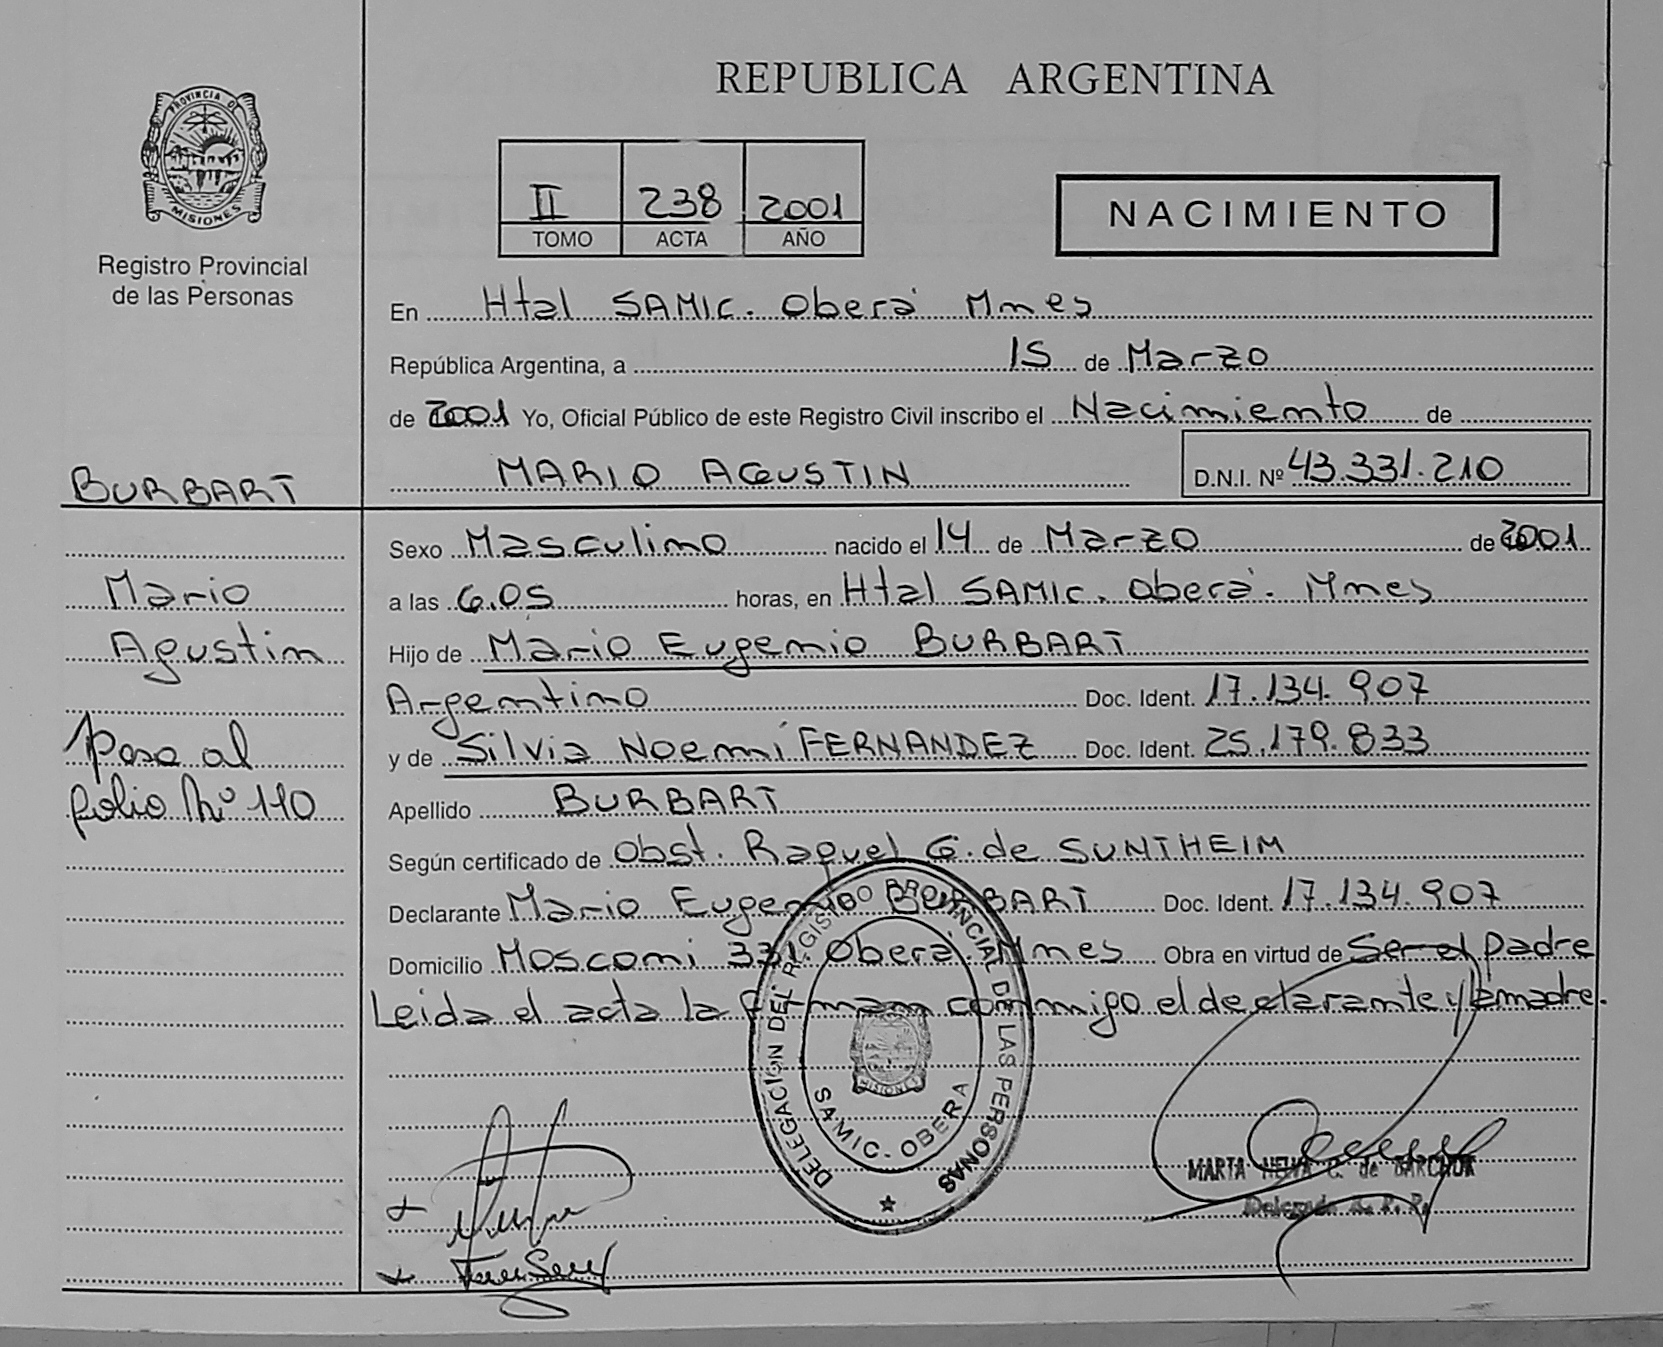 REPUBLICA ARGENTINA
PROVINCIA DE
MISIONES
Registro Provincial
de las Personas
II 238 2001
TOMO ACTA AÑO
NACIMIENTO
En Htal SAMIC. Oberá Mnes
República Argentina, a 15 de Marzo
de 2001 Yo, Oficial Público de este Registro Civil inscribo el Nacimiento de
MARIO AGUSTIN D.N.I. Nº 43.331.210
BURBART
Sexo Masculino nacido el 14 de Marzo de 2001
Mario
a las 6.05 horas, en Htal SAMIC. Oberá. Mnes
Agustin
Hijo de Mario Eugenio BURBART
Argentino Doc. Ident. 17.134.907
Paso al
y de Silvia Noemí FERNANDEZ Doc. Ident. 25.179.833
folio Nº 110
Apellido BURBART
Según certificado de Obst. Raquel G. de SUNTHEIM
Declarante Mario Eugenio BURBART Doc. Ident. 17.134.907
Domicilio Mosconi 331 Oberá. Mnes Obra en virtud de Ser el padre
Leida el acta la firman conmigo el declarante y la madre.
DELEGACIÓN DEL REGISTRO PROVINCIAL DE LAS PERSONAS
MISIONES
SAMIC. OBERA
MARTA C. de
Delegada R. P.